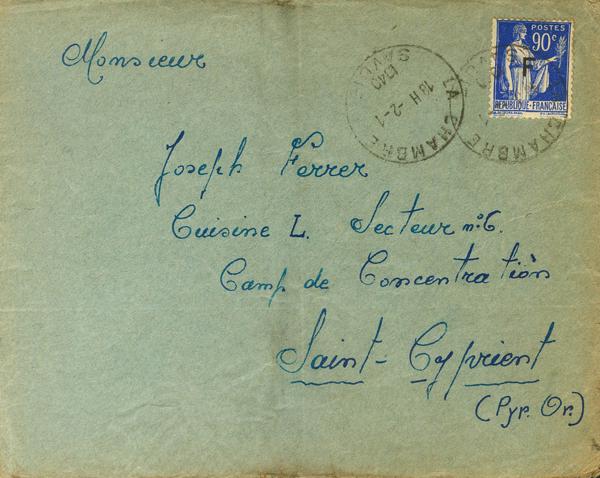 Monsieur
POSTES
90c
F
REPUBLIQUE·FRANÇAISE
LA CHAMBRE
18H -2-1
1940
CHAMBRE
Joseph Ferrer
Cuisine L. Secteur nº6.
Camp de Concentratiòn
Saint-Cyprient
(Pyr. Or.)